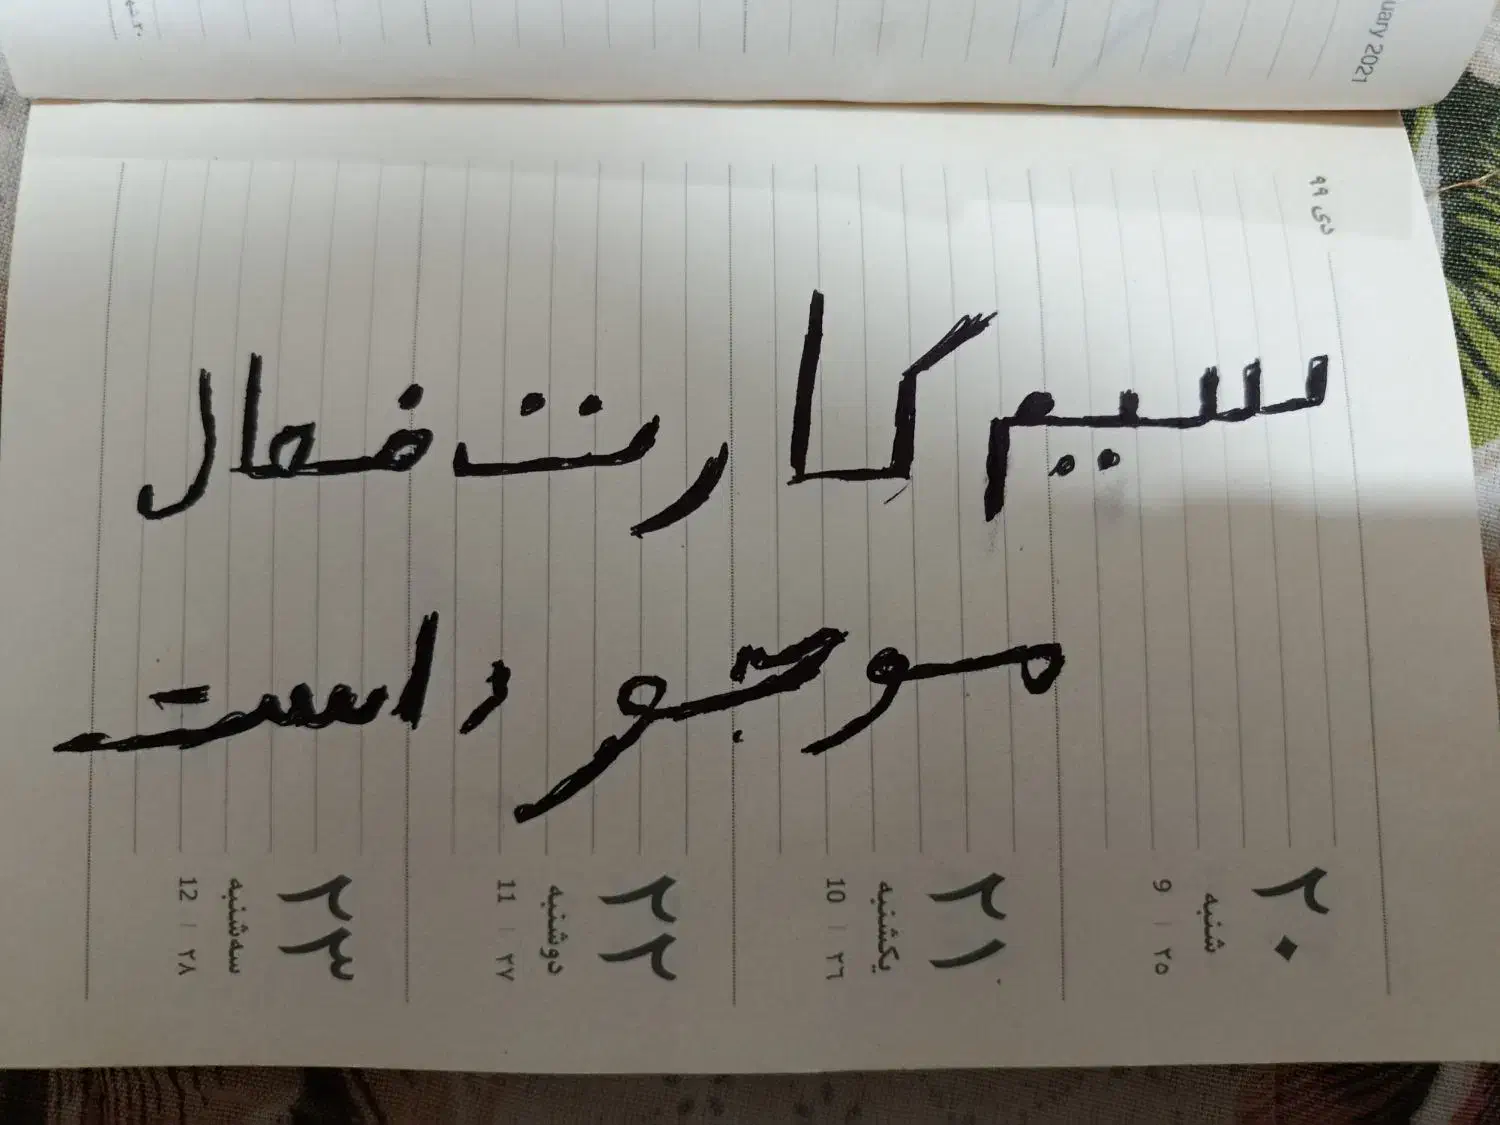 uary 2021
دی ۹۹
سیم کارت فعال
موجود است
۲۰
شنبه
9 | ۲۵
۲۱
یکشنبه
10 | ۲۶
۲۲
دوشنبه
11 | ۲۷
۲۳
سه‌شنبه
12 | ۲۸